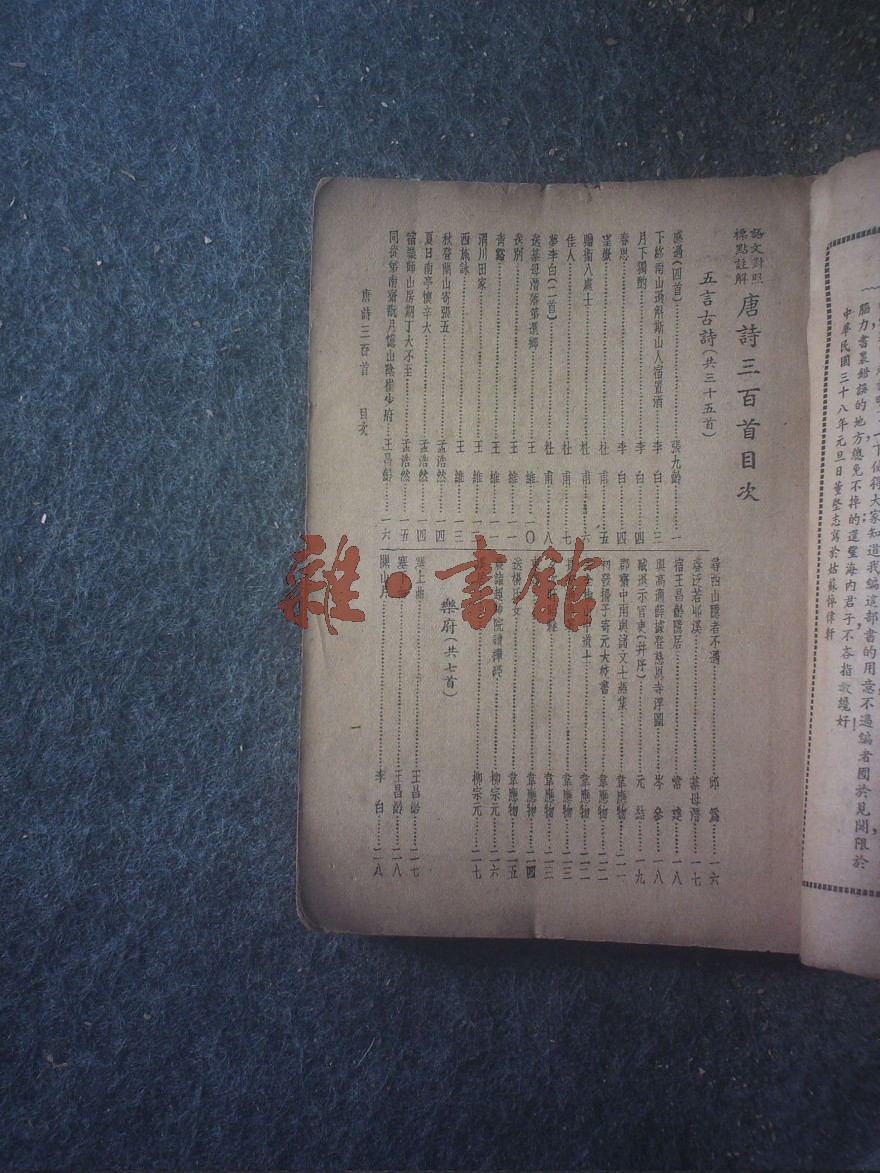 腦力書裏錯誤的地方總免不掉的還望海內君子不吝指教纔好！
中華民國三十八年元旦日董堅志寫於姑蘇
語文對照
標點註解
唐詩三百首目次
五言古詩（共三十五首）
感遇（四首）張九齡 一
下終南山過斛斯山人宿置酒 李白 三
月下獨酌 李白 四
春思 李白 四
望嶽 杜甫 五
贈衞八處士 杜甫 六
佳人 杜甫 七
夢李白（二首）杜甫 八
送綦毋潛落第還鄉 王維 一〇
送別 王維 一一
青谿 王維 一一
渭川田家 王維 一二
西施詠 王維 一三
秋登蘭山寄張五 孟浩然 一四
夏日南亭懷辛大 孟浩然 一四
宿業師山房期丁大不至 孟浩然 一五
同從弟南齋翫月憶山陰崔少府 王昌齡 一六
尋西山隱者不遇 邱爲 一六
春泛若耶溪 綦毋潛 一七
宿王昌齡隱居 常建 一八
與高適薛據登慈恩寺浮圖 岑參 一八
賊退示官吏（并序）元結 一九
郡齋中雨與諸文士燕集 韋應物 二一
初發揚子寄元大校書 韋應物 二二
韋應物 二二
韋應物 二三
韋應物 二三
韋應物 二四
送楊氏女 韋應物 二五
晨詣超師院讀禪經 柳宗元 二六
柳宗元 二七
樂府（共七首）
塞上曲 王昌齡 二七
王昌齡 二八
關山月 李白 二八
唐詩三百首 目次
一
雜·書館